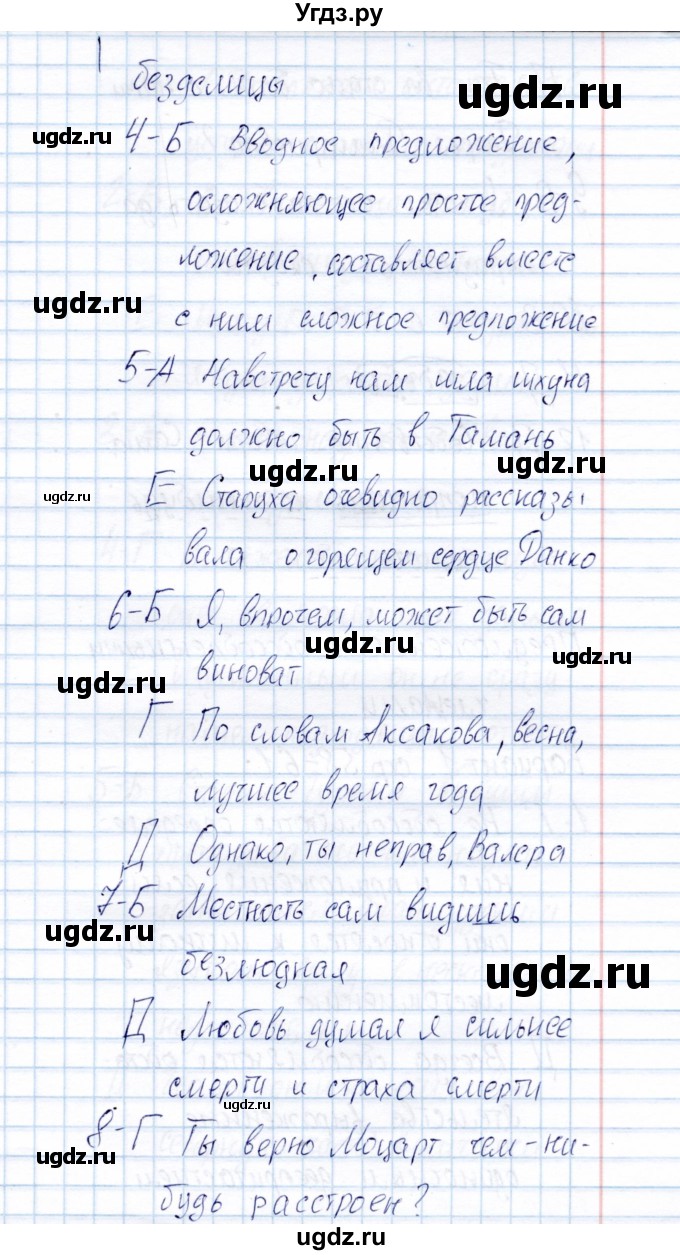 Угдз.ру
безделицы
ugdz.ru
ugdz.ru
4-Б Вводное предложение,
осложняющее простое пред-
ложение, составляет вместе
ugdz.ru
с ним сложное предложение
5-А Навстречу нам шла шхуна
должно быть в Тамань
ugdz.ru
ugdz.ru
ugdz.ru
Е Старуха очевидно рассказы
вала о горящем сердце Данко
6-Б Я, впрочем, может быть сам
ugdz.ru
ugdz.ru
виноват
ugdz.ru
Г По словам Аксакова, весна,
лучшее время года
Д Однако, ты неправ, Валера
7-Б Местность сам видишь
ugdz.ru
безлюдная
ugdz.ru
Д Любовь думал я сильнее
смерти и страха смерти
ugdz.ru
8-Г Ты верно Моцарт чем-ни-
ugdz.ru
будь расстроен?
ugdz.ru
ugdz.ru